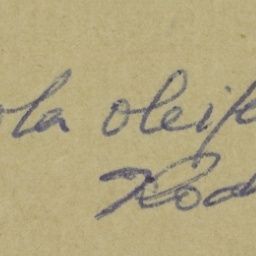 ola oleife
Rod